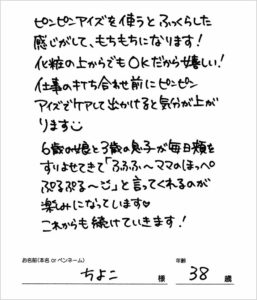 ピンピンアイズを使うとふっくらした
感じがして、もちもちになります!
化粧の上からでもOKだから嬉しい!
仕事の打ち合わせ前にピンピン
アイズでケアして出かけると気分が上が
ります
6歳の娘と3歳の息子が毎日頬を
すりよせてきて「ふふふ〜ママのほっぺ
ぷるぷる〜」と言ってくれるのが
楽みになっています
これからも続けていきます!
お名前(本名 or ペンネーム) 年齢
ちよこ 様 38 歳